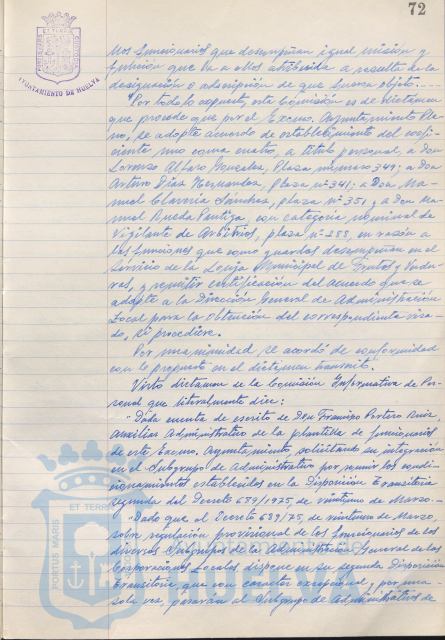 72
AYUNTAMIENTO DE HUELVA
mos funcionarios que desempeñan igual misión y
función que la a ellos atribuida a resulta de la
designación o adscripción de que fueron objeto.
"Por todo lo expuesto, esta Comisión es de dictamen
que procede que por el Excmo. Ayuntamiento Ple-
no, se adopte acuerdo de establecimiento del coefi-
ciente uno coma cuatro, a título personal, a Don
Lorenzo Alfaro Gonzalez, Plaza número 349; a Don
Arturo Dias Hernandez, Plaza nº 341; a Don Ma-
nuel Sánchez, plaza nº 351 y a Don Ma-
nuel Rueda Pantiga, con categoría nominal de
Vigilante de Arbitrios, plaza nº 288, en razón a
las funciones que como guardas desempeñan en el
Servicio de la Lonja Municipal de Frutos y Verdu-
ras, y remitir certificación del acuerdo que se
adopte a la Dirección General de Administración
Local para la obtención del correspondiente visa-
do, si procediere.
Por unanimidad se acordó de conformidad
con lo propuesto en el dictamen transcrito.
Visto dictamen de la Comisión Informativa de Per-
sonal que literalmente dice:
"Dada cuenta de escrito de Don Francisco Portero Ruiz
Auxiliar Administrativo de la plantilla de funcionarios
de este Excmo. Ayuntamiento, solicitando su integración
en el Subgrupo de Administrativo por reunir los condi-
cionamientos establecidos en la Disposición Transitoria
segunda del Decreto 689/1975, de veintiuno de Marzo.-
"Dado que el Decreto 689/75, de veintiuno de Marzo,
sobre regulación provisional de los funcionarios de los
diversos Subgrupos de la Administración General de las
Corporaciones Locales dispone en su segunda Disposición
Transitoria que con carácter excepcional y por una
sola vez, pasarán al Subgrupo de Administrativos de
ET TERRA
PORTUS MARIS